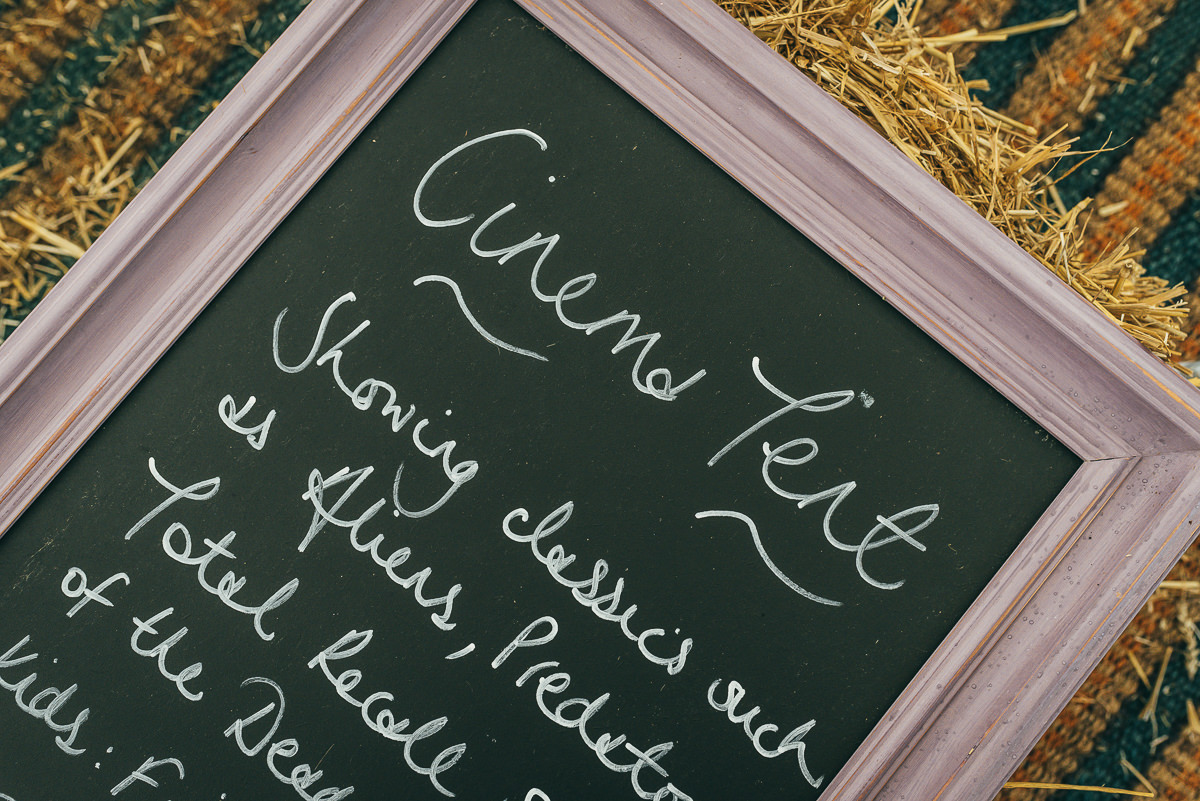 Cinema Tent
Showing classic's such
as Aliens, Predato
Total Recall
of the Dead
Kids. F